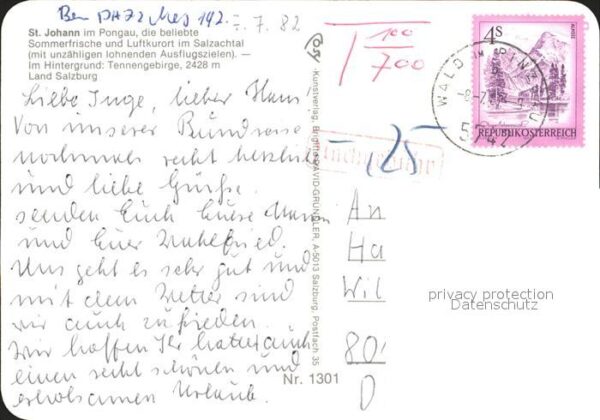 7.7.82
St. Johann im Pongau, die beliebte
Sommerfrische und Luftkurort im Salzachtal
(mit unzähligen lohnenden Ausflugszielen). —
Im Hintergrund: Tennengebirge, 2428 m
Land Salzburg
Liebe Inge, lieber Hans!
Von unserer Rundreise
nochmals recht herzliche
und liebe Grüße
senden Euch Eure
und Euer
Uns geht es sehr gut und
mit dem Wetter sind
wir auch zufrieden.
Wir hoffen Ihr hattet auch
einen recht schönen und
erholsamen Urlaub.
Kunstverlag, Brigitte DAVID-GRÜNDLER, A-5013 Salzburg, Postfach 35
Nr. 1301
T 100
700
25
Nachgebühr
4S
REPUBLIK ÖSTERREICH
WALD IM PINZGAU
5742
An
Ha
Wil
80
D
privacy protection
Datenschutz